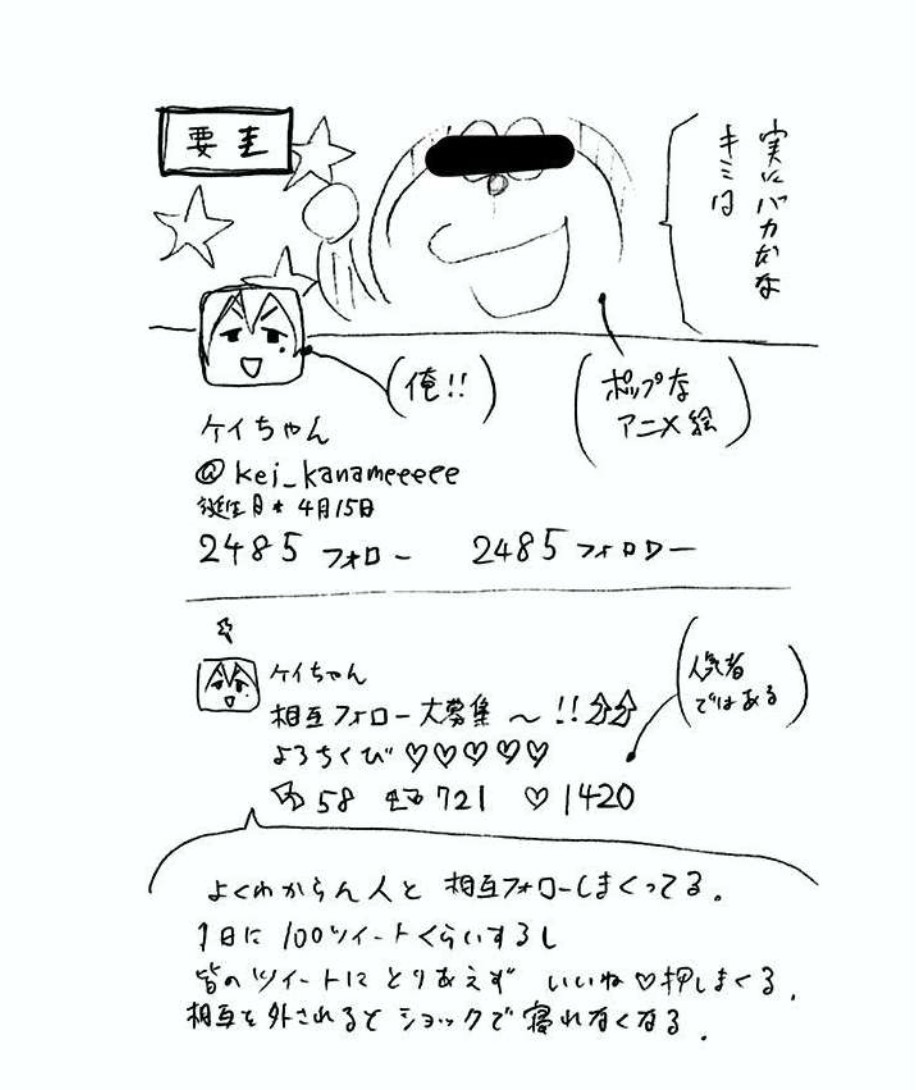 要圭
キミは
実にバカだな
(俺!!)
(ポップな
アニメ絵)
ケイちゃん
@kei_kanameeeee
誕生日* 4月15日
2485 フォロー 2485 フォロワー
ケイちゃん
相互フォロー大募集〜!!⇧⇧
よろちくび♡♡♡♡♡
58 721 ♡1420
(人気者
ではある)
よくわからん人と 相互フォローしまくってる。
1日に 100ツイートくらいするし
皆のツイートに とりあえず いいね♡押しまくる.
相互を外されると ショックで 寝れなくなる.